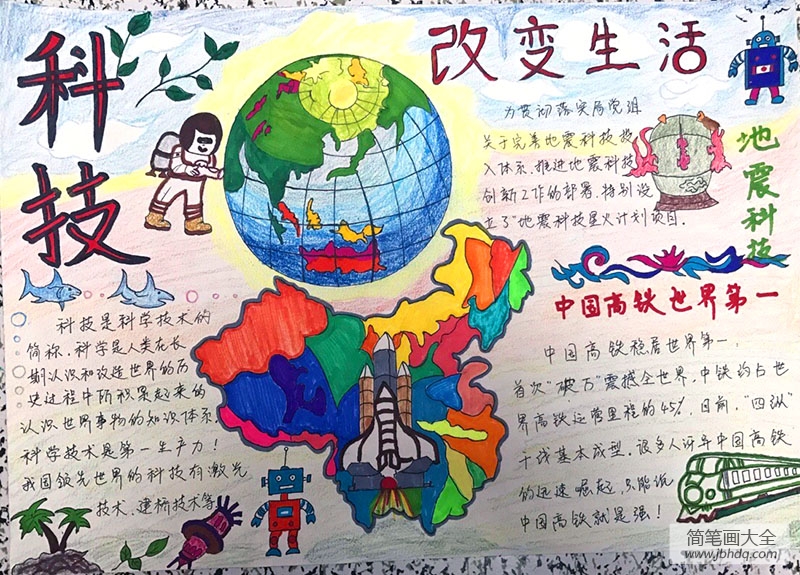 科技
改变生活
为贯彻落实局党组
关于完善地震科技投
入体系、推进地震科技
创新工作的部署,特别设
立了"地震科技星火计划项目.
地震科技
中国高铁世界第一
中国高铁稳居世界第一,
首次"破万"震撼全世界,中铁约占世
界高铁运营里程的45%,目前,"四纵"
干线基本成型。很多人评年中国高铁
的迅速崛起,只能说
中国高铁就是强!
科技是科学技术的
简称.科学是人类在长
期认识和改造世界的历
史过程中所积累起来的
认识世界事物的知识体系.
科学技术是第一生产力!
我国领先世界的科技有激光
技术、建桥技术等
简笔画大全
www.jbhdq.com